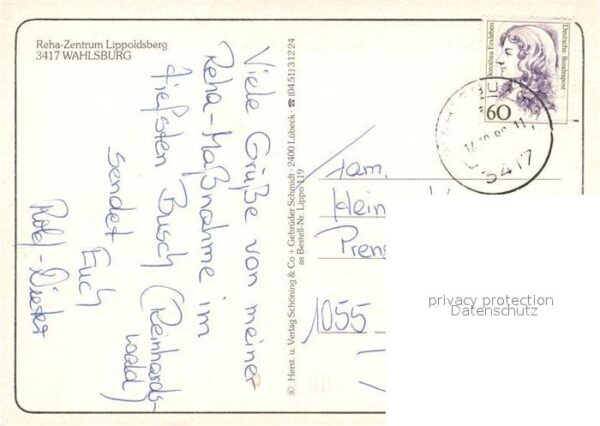 Reha-Zentrum Lippoldsberg
3417 WAHLSBURG
Viele Grüße von meiner
Reha-Maßnahme im
tiefsten Busch (Reinhards-
wald)
sendet
Euch
Rolf-Dieter
® Herst. u. Verlag Schöning & Co + Gebrüder Schmidt, 2400 Lübeck · ☎ (0451) 3 12 24
as Bestell-Nr. Lippo 119
Dorothea Erxleben
Deutsche Bundespost
60
3417
Fam.
Hein
Prens
1055
privacy protection
Datenschutz